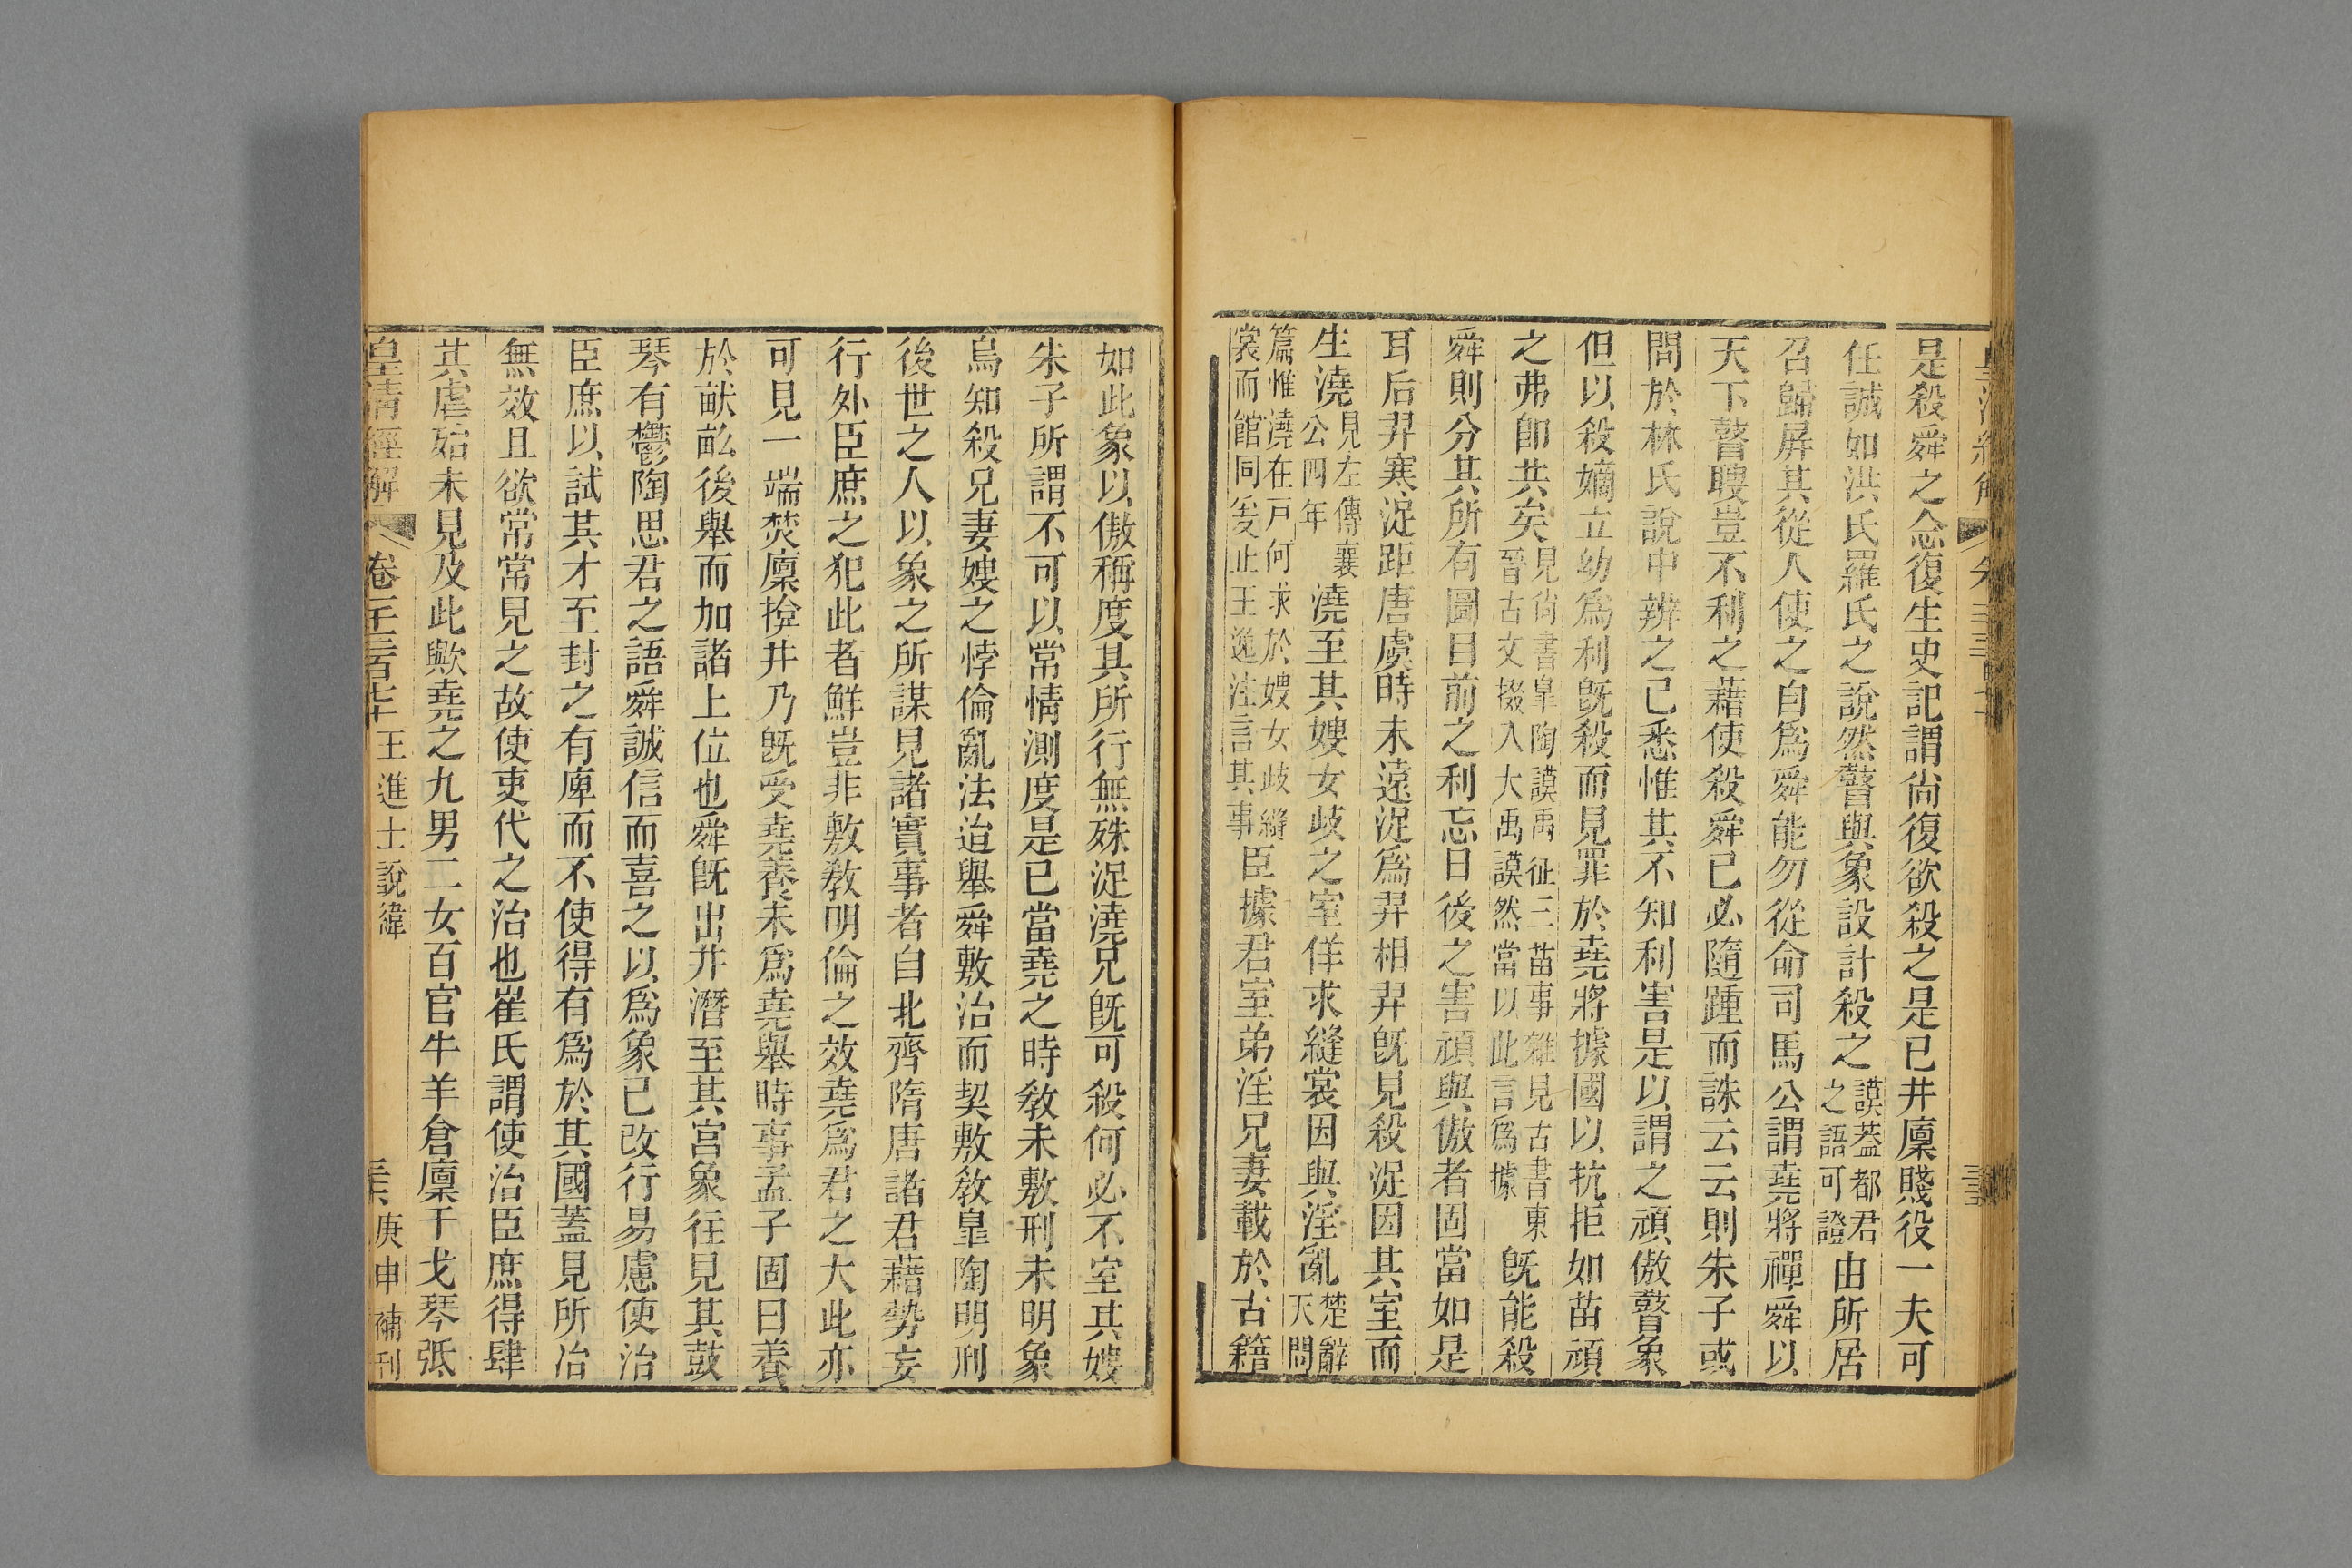 是殺舜之念復生史記謂尙復欲殺之是已井廩賤役一夫可
任誠如洪氏羅氏之說然瞽與象設計殺之謨蓋都君之語可證由所居
召歸屏其從人使之自爲舜能勿從命司馬公謂堯將禪舜以
天下瞽聰豈不利之藉使殺舜已必隨踵而誅云云則朱子或
問於林氏說中辨之已悉惟其不知利害是以謂之頑傲瞽象
但以殺嫡立幼爲利旣殺而見罪於堯將據國以抗拒如苗頑
之弗卽共矣見尙書皋陶謨禹征三苗事雜見古書東晉古文掇入大禹謨然當以此言爲據旣能殺
舜則分其所有圖目前之利忘日後之害頑與傲者固當如是
耳后羿寒浞距唐虞時未遠浞爲羿相羿旣見殺浞因其室而
生澆見左傳襄公四年澆至其嫂女歧之室佯求縫裳因與淫亂楚辭天問
篇惟澆在戸何求於嫂女歧縫裳而館同爰止王逸注言其事臣據君室弟淫兄妻載於古籍
如此象以傲稱度其所行無殊浞澆兄旣可殺何必不室其嫂
朱子所謂不可以常情測度是已當堯之時敎未敷刑未明象
烏知殺兄妻嫂之悖倫亂法迨舉舜敷治而契敷敎皐陶明刑
後世之人以象之所謀見諸實事者自北齊隋唐諸君藉勢妄
行外臣庶之犯此者鮮豈非敷敎明倫之效堯爲君之大此亦
可見一端焚廩揜井乃旣受堯養未爲堯舉時事孟子固曰養
於畎畝後舉而加諸上位也舜旣出井潛至其宮象往見其鼓
琴有鬱陶思君之語舜誠信而喜之以爲象已改行易慮使治
臣庶以試其才至封之有庳而不使得有爲於其國蓋見所治
無效且欲常常見之故使吏代之治也崔氏謂使治臣庶得肆
其虐殆未見及此歟堯之九男二女百官牛羊倉廩干戈琴弤
皇淸經解 卷 王進士說緯 庚申補刊